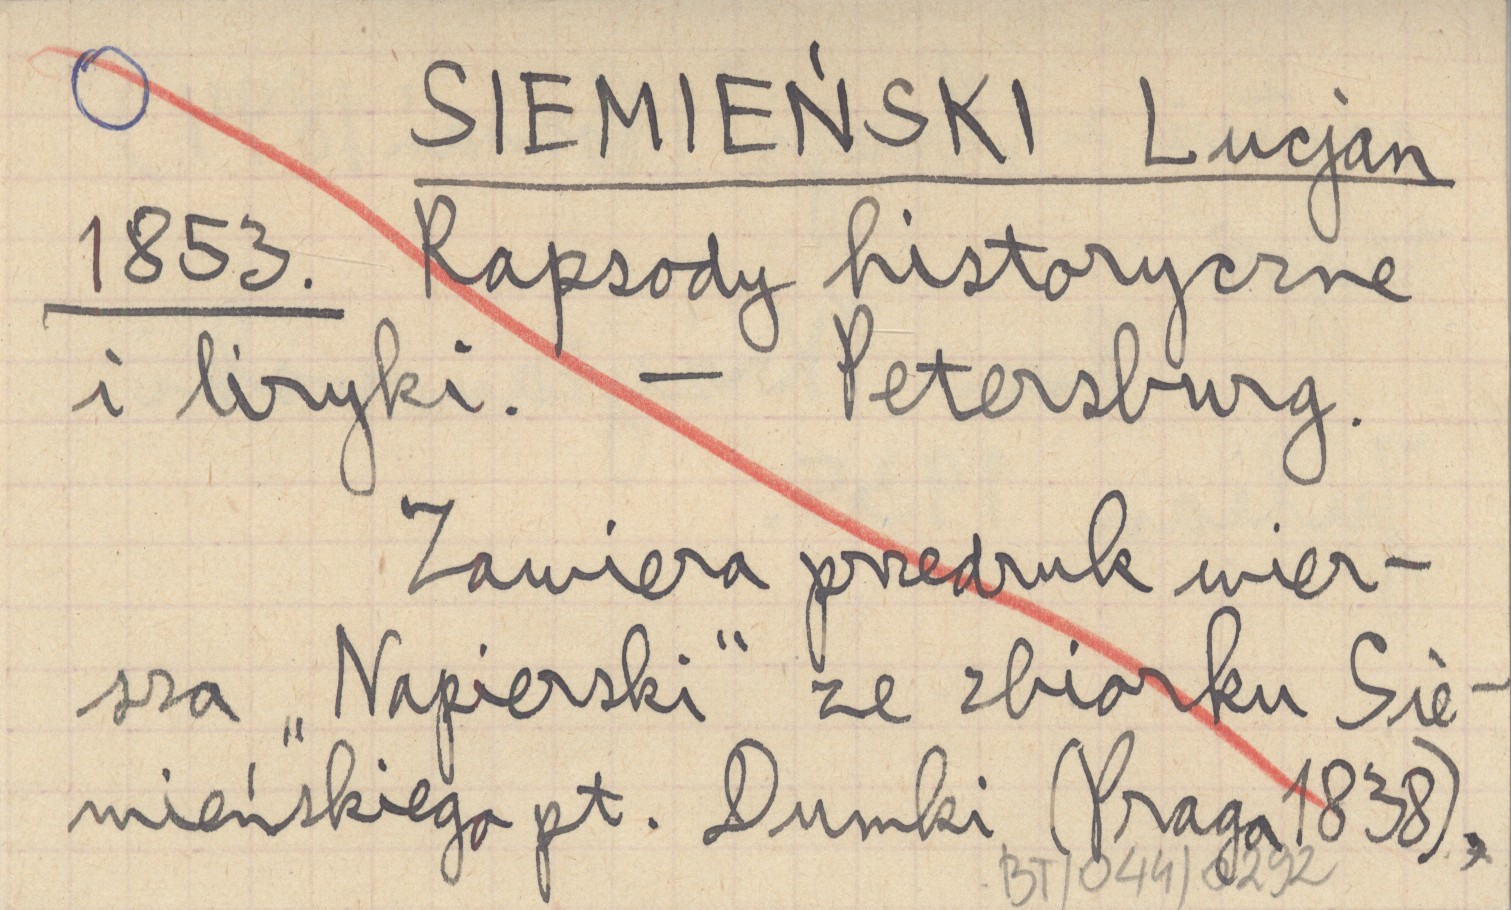 SIEMIEŃSKI Lucjan
1853. Rapsody historyczne
i liryki. — Petersburg.
Zawiera przedruk wier-
sza „Napierski" ze zbiorku Sie-
mieńskiego pt. Dumki (Praga 1838).
BT/044/0292